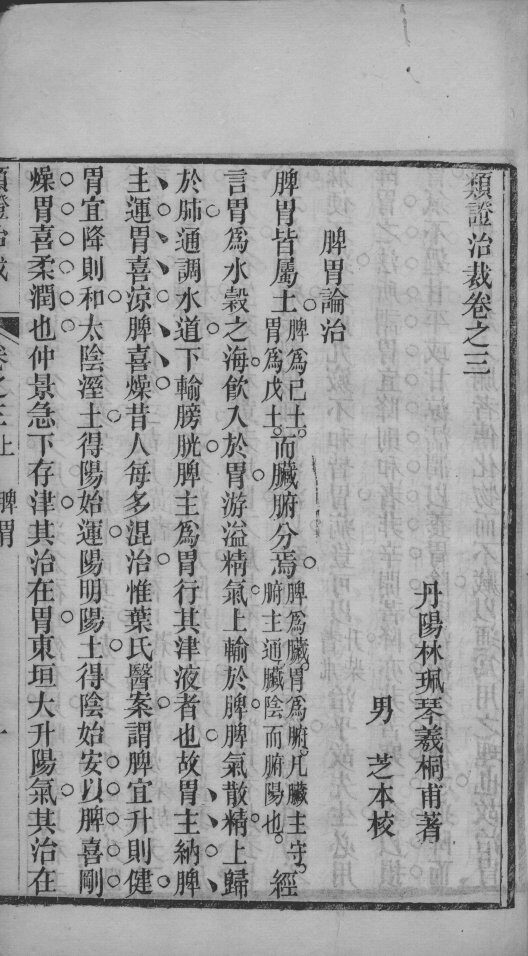 類證治裁卷之三
丹陽林珮琴羲桐甫著
男　芝本校
脾胃論治
脾胃皆屬土脾為己土。胃為戊土。而臟腑分焉脾為臟。胃為腑。凡臟主守。腑主通臟陰而腑陽也。經
言胃為水穀之海飲入於胃游溢精氣上輸於脾脾氣散精上歸
於肺通調水道下輸膀胱脾主為胃行其津液者也故胃主納脾
主運胃喜涼脾喜燥昔人每多混治惟葉氏醫案謂脾宜升則健
胃宜降則和太陰溼土得陽始運陽明陽土得陰始安以脾喜剛
燥胃喜柔潤也仲景急下存津其治在胃東垣大升陽氣其治在
類證治裁
卷之三上　脾胃
一